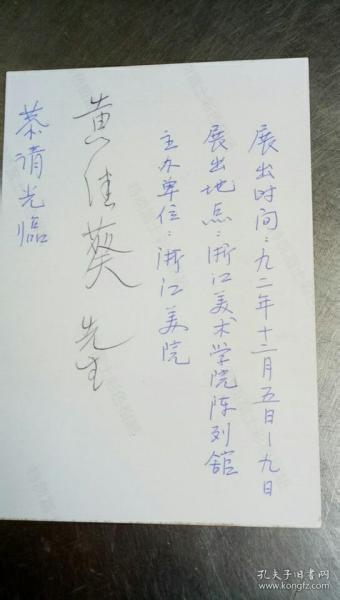 展出时间：九二年十二月五日－九日
展出地点：浙江美术学院陈列馆
主办单位：浙江美院
黄佳葵 先生
恭请光临
孔夫子旧书网
www.kongfz.com